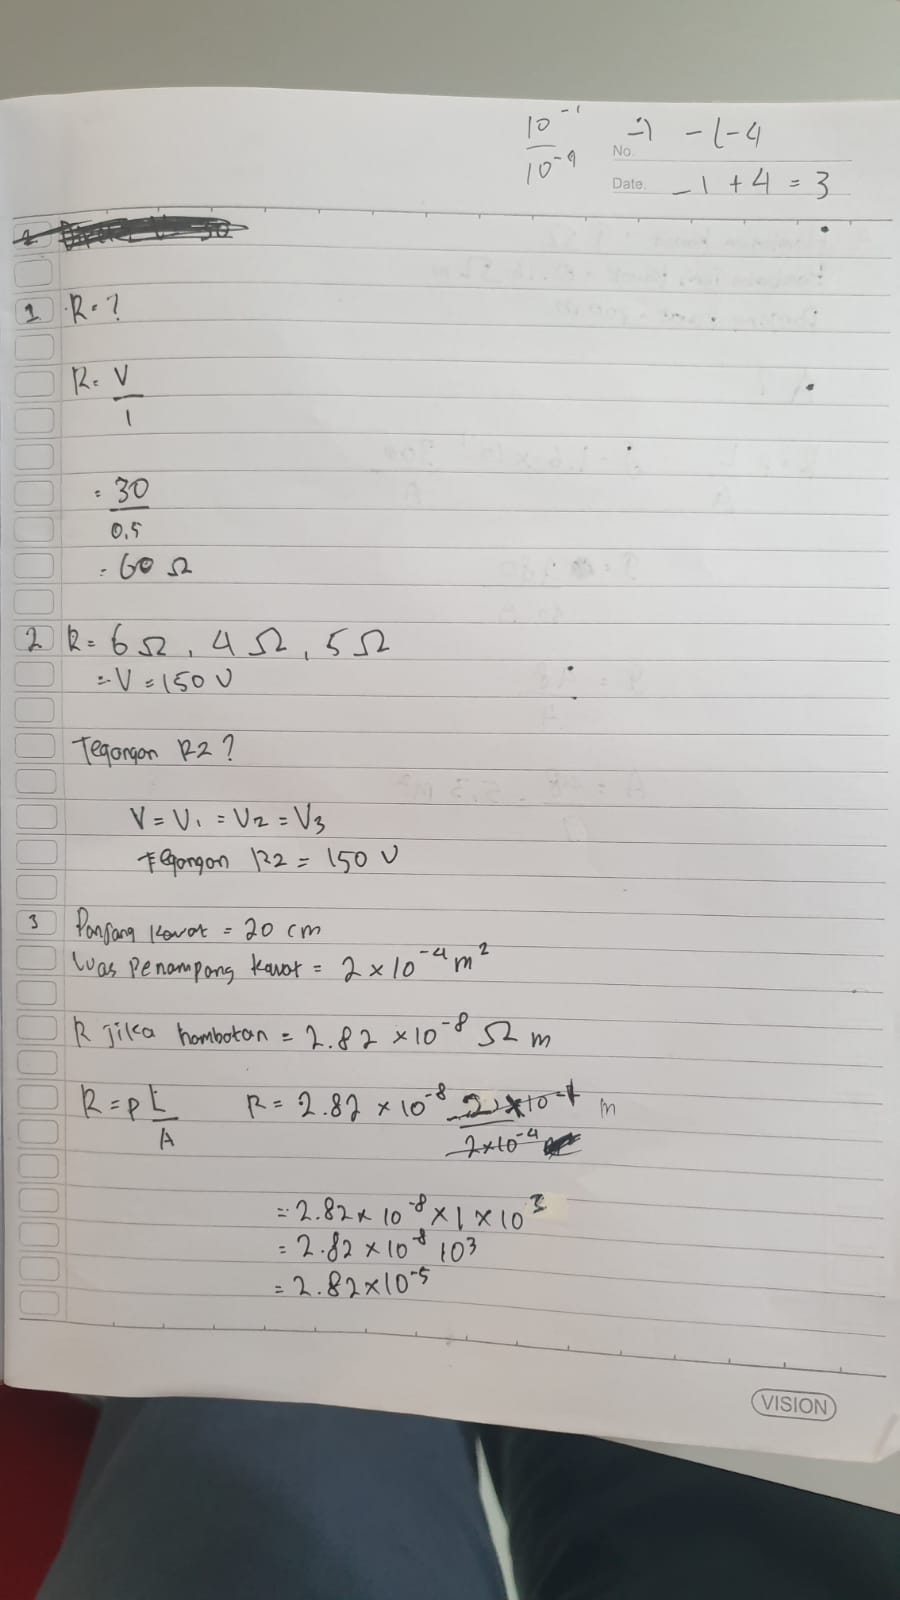 10⁻¹ ⇒ -1-4
10⁻⁴
No.
Date. -1 + 4 = 3
1 R = ?
R = V
I
= 30
0,5
= 60 Ω
2 R = 6 Ω, 4 Ω, 5 Ω
= V = 150 V
Tegangan R2 ?
V = V₁ = V₂ = V₃
Tegangan R2 = 150 V
3 Panjang kawat = 20 cm
Luas Penampang kawat = 2 × 10⁻⁴ m²
R jika hambatan = 2.82 × 10⁻⁸ Ω m
R = ρ L R = 2.82 × 10⁻⁸ 2 × 10⁻¹ m
A 2×10⁻⁴
= 2.82 × 10⁻⁸ × 1 × 10³
= 2.82 × 10⁻⁸ 10³
= 2.82 × 10⁻⁵
VISION